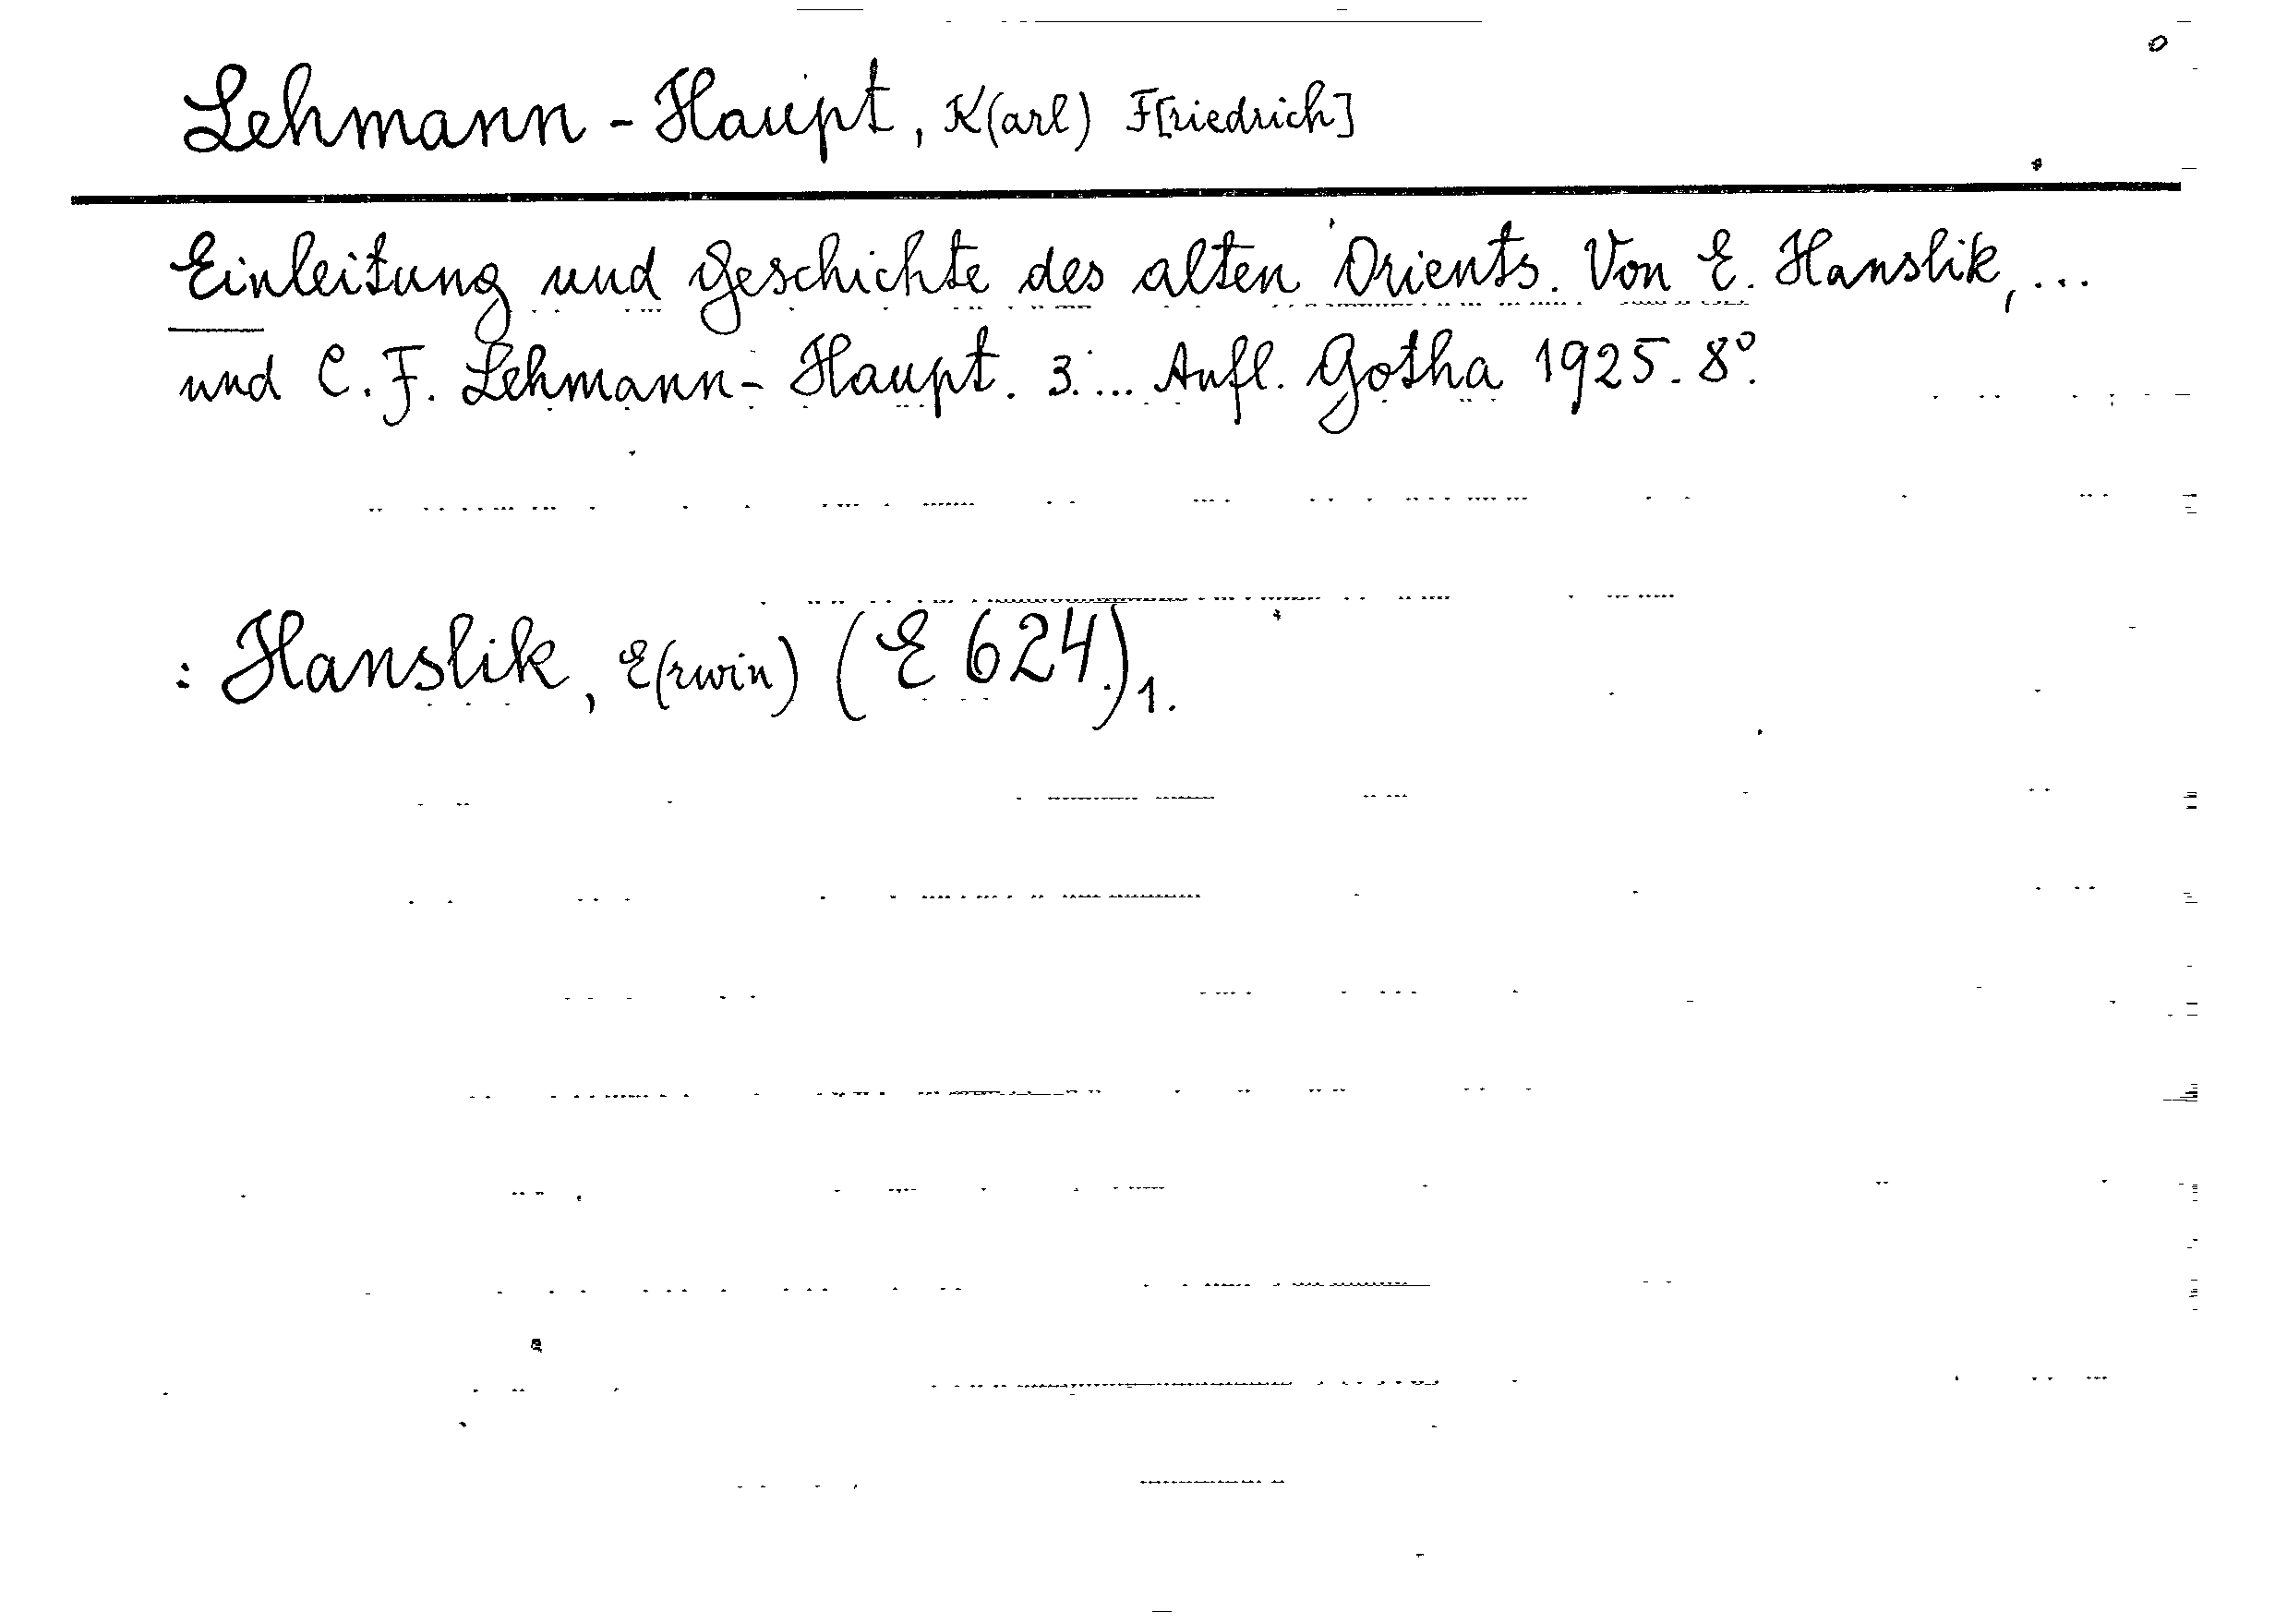 Lehmann-Haupt, K(arl) F[riedrich]
Einleitung und Geschichte des alten Orients. Von E. Hanslik, ...
und C. F. Lehmann-Haupt. 3. ... Aufl. Gotha 1925. 8°.
: Hanslik, E(rwin) (E 624.)1.